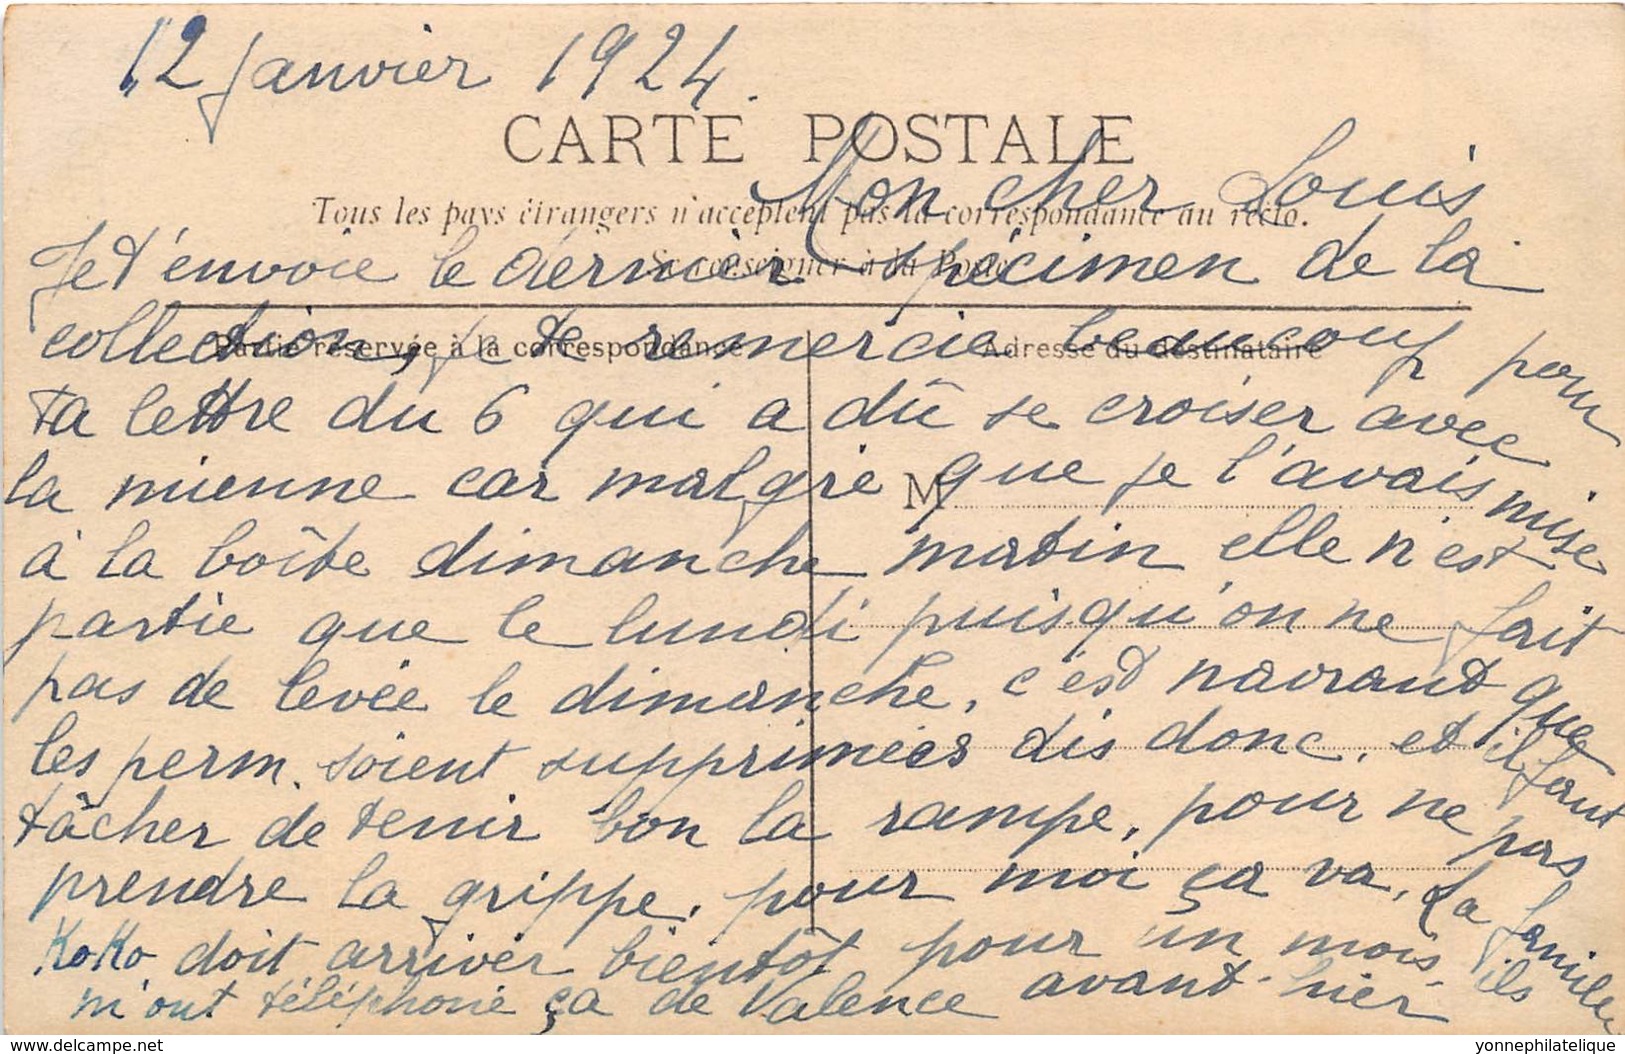 12 janvier 1924.
CARTE POSTALE
Mon cher Louis
Tous les pays étrangers n'acceptent pas la correspondance au recto.
Se renseigner à la Poste
Je t'envoie le dernier spécimen de la
collection, je te remercie beaucoup pour
Partie réservée à la correspondance
Adresse du destinataire
ta lettre du 6 qui a dû se croiser avec
la mienne car malgré que je l'avais mise
M
à la boîte dimanche matin elle n'est
partie que le lundi puisqu'on ne fait
pas de levée le dimanche, c'est navrant que
les perm. soient supprimées dis donc, et il faut
tâcher de tenir bon la rampe, pour ne pas
prendre la grippe, pour moi ça va. La famille
KoKo doit arriver bientôt pour un mois, ils
m'ont téléphoné ça de Valence avant-hier
delcampe.net
yonnephilatelique